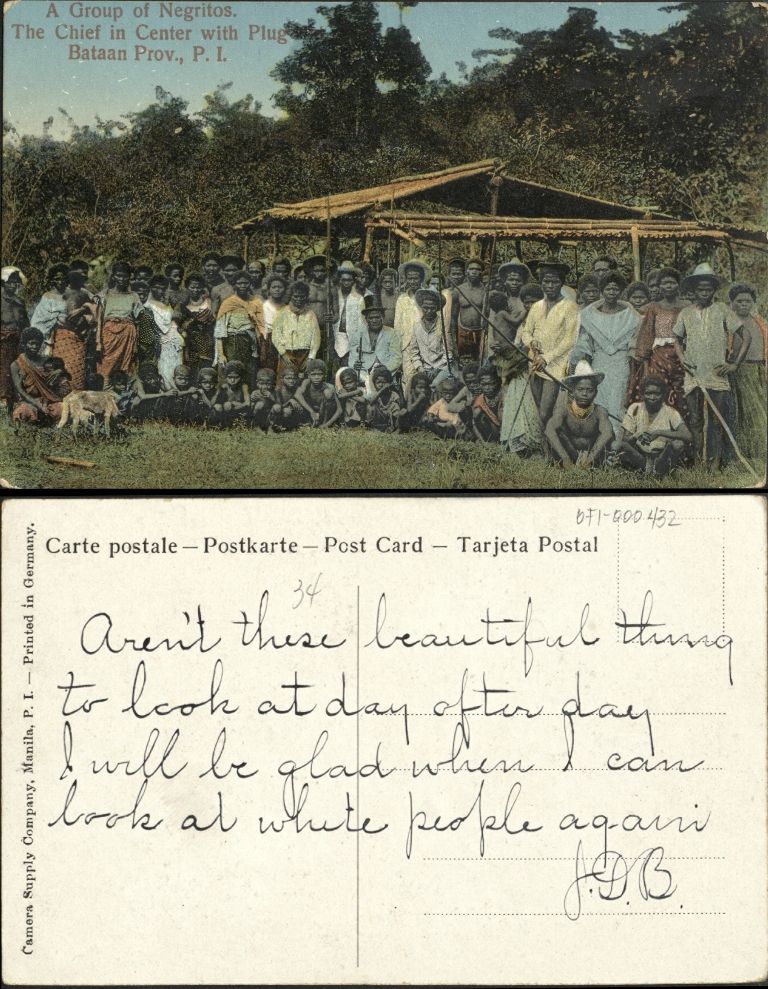 A Group of Negritos.
The Chief in Center with Plug
Bataan Prov., P. I.
OFI-000432
Carte postale — Postkarte — Post Card — Tarjeta Postal
34
Aren't these beautiful thing
to look at day after day
I will be glad when I can
look at white people again
J.D.B.
Camera Supply Company, Manila, P. I. — Printed in Germany.